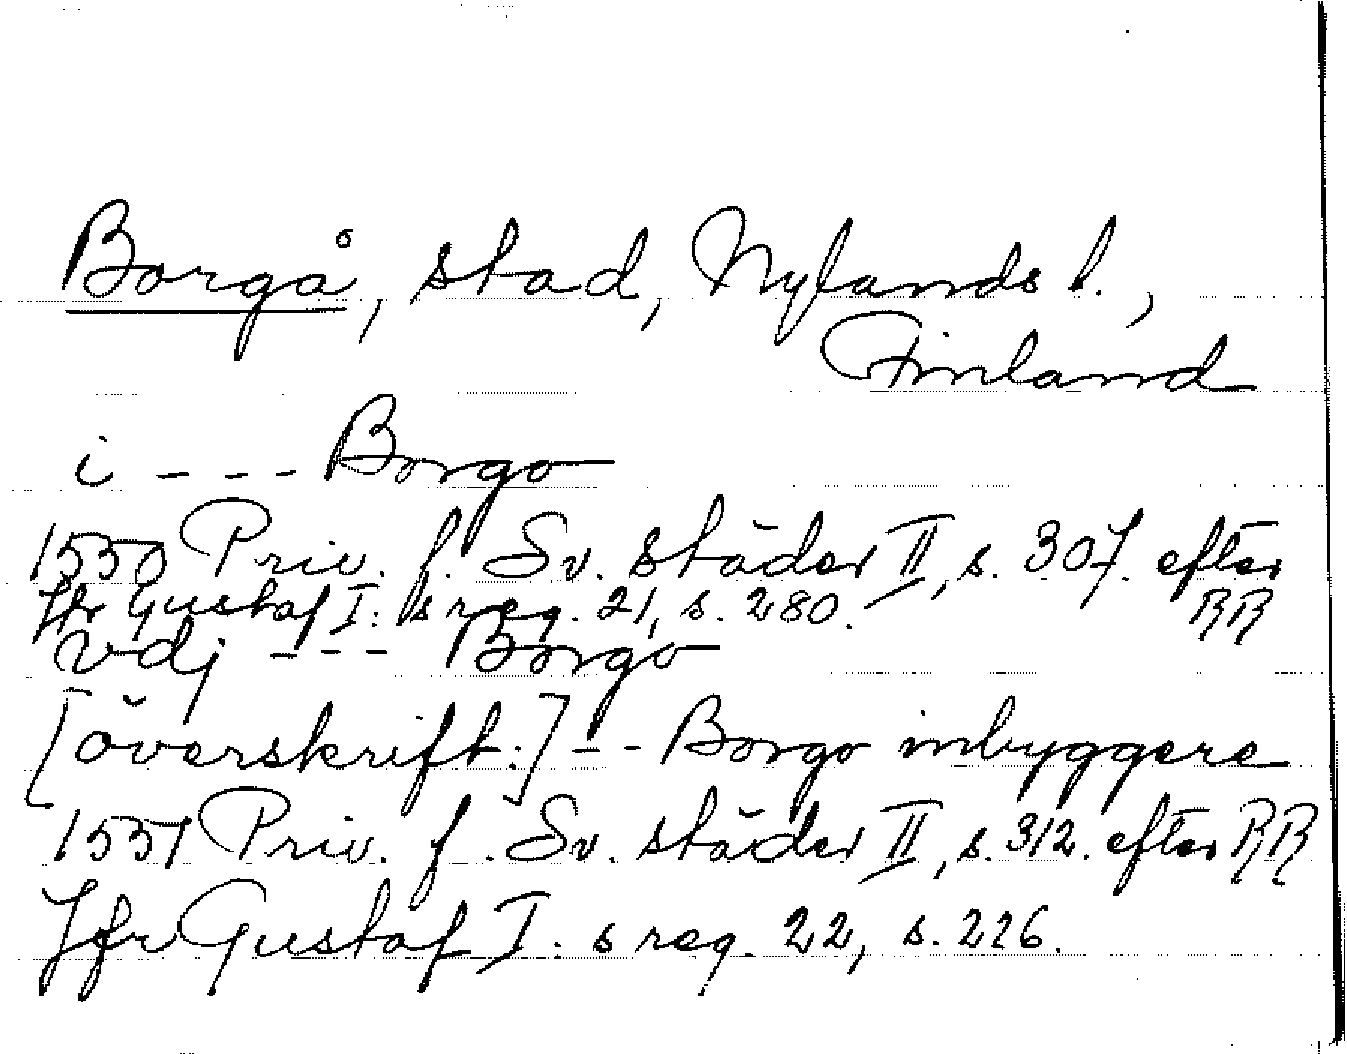 Borgå, stad, Nylands l.,
Finland
i --- Borgo
1550 Priv. f. Sv. städer II, s. 307. efter
Jfr Gustaf I: s reg. 21, s. 280. RR
vdj --- Borgo
[överskrift:] -- Borgo inbyggere
1551 Priv. f. Sv. städer II, s. 312. efter RR
Jfr Gustaf I: s reg. 22, s. 226.